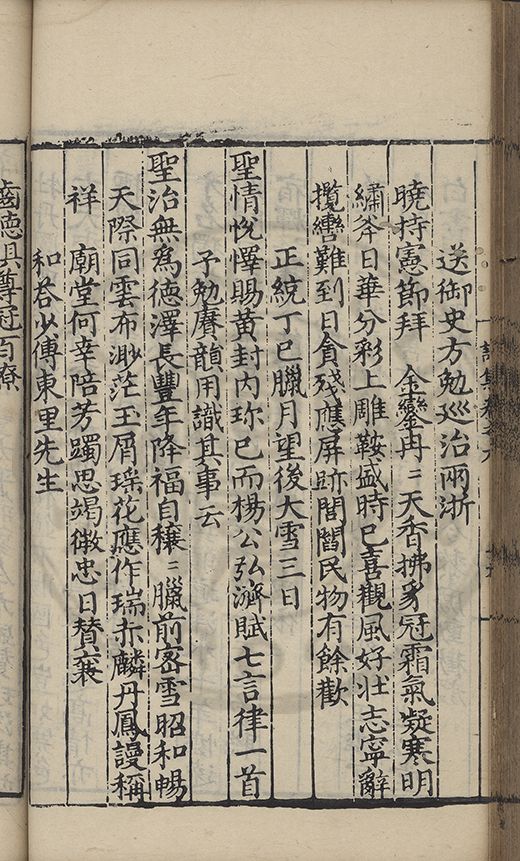 送御史方勉巡治兩浙
曉持憲節拜　金鑾冉〻天香拂豸冠霜氣凝寒明
繡斧日華分彩上雕鞍盛時已喜觀風好壯志寧辭
攬轡難到日貪殘應屏跡閭閻民物有餘歡
正統丁巳臘月望後大雪三日
聖情悅懌賜黃封內珎已而楊公弘濟賦七言律一首
予勉賡韻用識其事云
聖治無為德澤長豐年降福自穰〻臘前宻雪昭和暢
天際同雲布渺茫玉屑瑤花應作瑞赤麟丹鳳謾稱
祥　廟堂何幸陪芳躅思竭微忠日贊襄
和答少傅東里先生
齒德具尊冠百僚